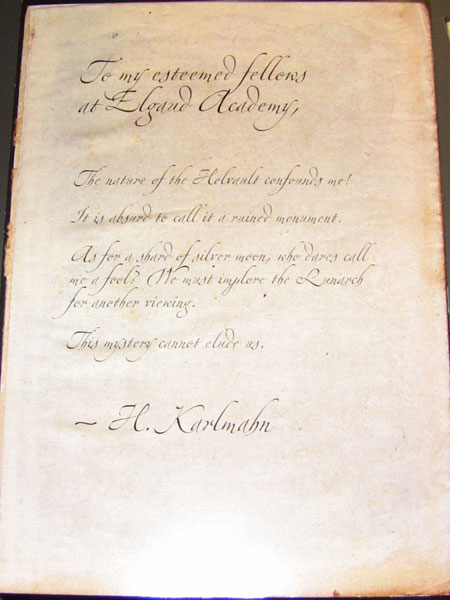 To my esteemed fellows
at Elgaud Academy,
The nature of the Helvault confounds me!
It is absurd to call it a ruined monument.
As for a shard of silver moon, who dares call
me a fool? We must implore the Lunarch
for another viewing.
This mystery cannot elude us.
– H. Karlmahn